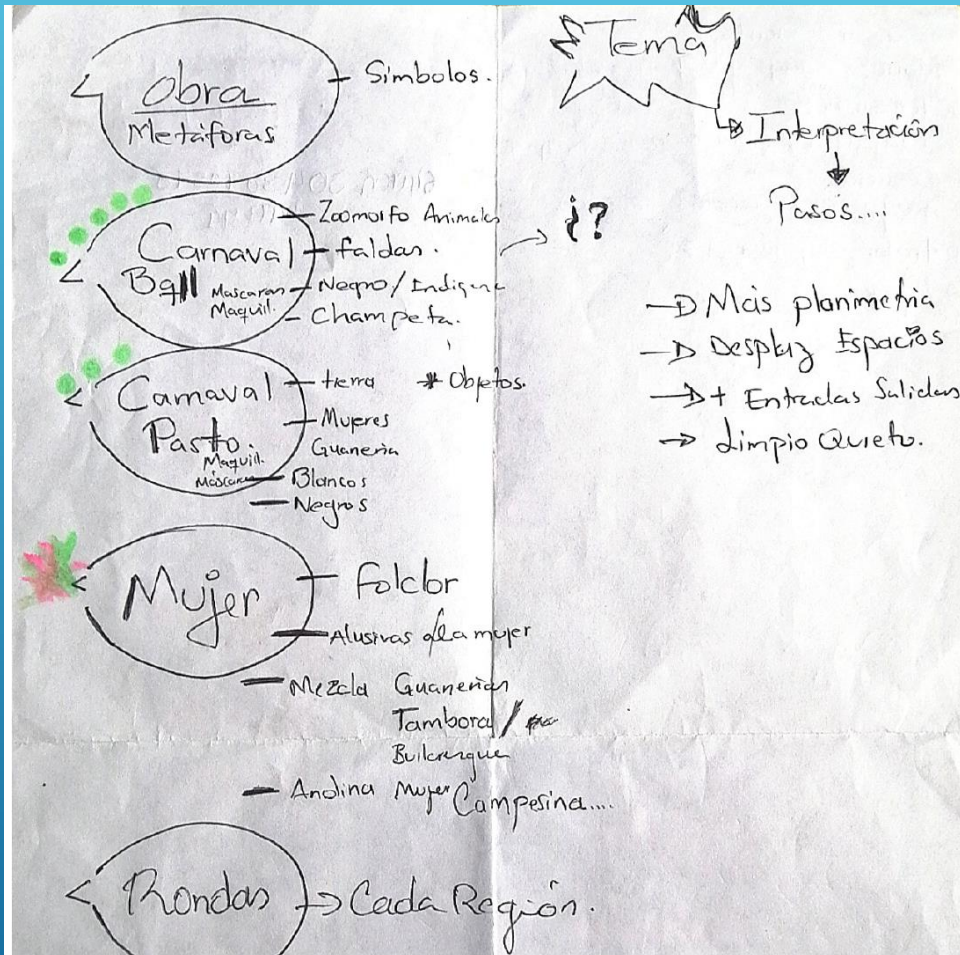 Obra
Metáforas
Simbolos.
Carnaval
Bqll
Mascaras
Maquil.
Zoomorfo Animales
faldas.
Negro / Indigena
Champeta.
¿?
Carnaval
Pasto.
Maquill.
Máscaras
tierra
* Objetos.
Mujeres
Guaneña
Blancos
Negros
Mujer
Folclor
Alusivas a la mujer
Mezcla Guaneña
Tambora /
Bullerengue
Andina Mujer Campesina....
Rondas
Cada Región.
Tema
Interpretación
Pasos....
Más planimetria
Desplaz Espacios
+ Entradas Salidas
Limpio Quieto.